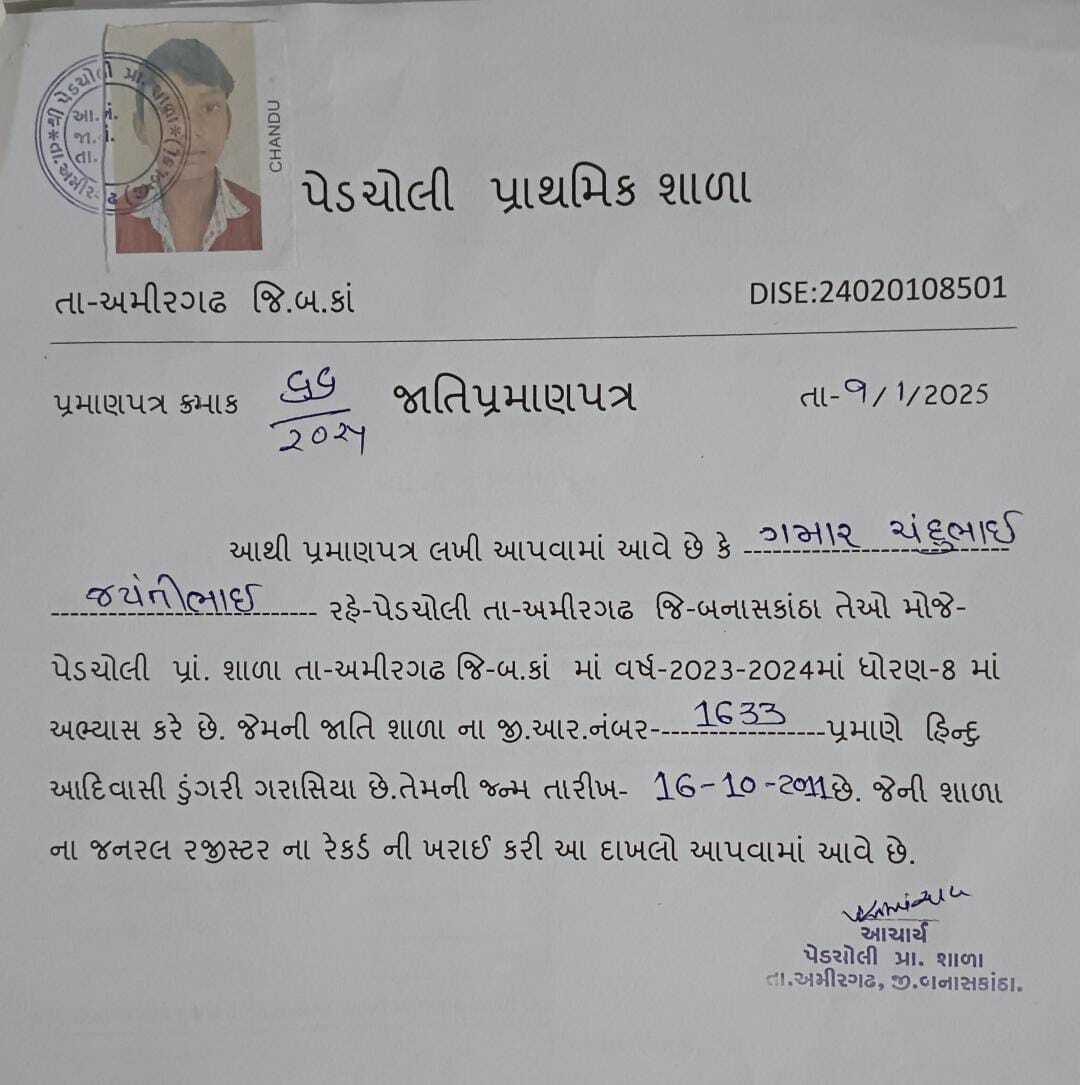 શ્રી પેડચોલી પ્રા. શાળા * (બ.કાં) તા.અમીરગઢ *
આ.નં.
જા.નં.
તા.
CHANDU
પેડચોલી પ્રાથમિક શાળા
તા-અમીરગઢ જિ.બ.કાં DISE:24020108501
પ્રમાણપત્ર ક્રમાક ૬૬/૨૦૨૫ જાતિપ્રમાણપત્ર તા-૧/1/2025
આથી પ્રમાણપત્ર લખી આપવામાં આવે છે કે ગમાર ચંદુભાઈ
જયંતીભાઈ રહે-પેડચોલી તા-અમીરગઢ જિ-બનાસકાંઠા તેઓ મોજે-
પેડચોલી પ્રાં. શાળા તા-અમીરગઢ જિ-બ.કાં માં વર્ષ-2023-2024માં ધોરણ-8 માં
અભ્યાસ કરે છે. જેમની જાતિ શાળા ના જી.આર.નંબર-1633-પ્રમાણે હિન્દુ
આદિવાસી ડુંગરી ગરાસિયા છે.તેમની જન્મ તારીખ- 16-10-2011છે. જેની શાળા
ના જનરલ રજીસ્ટર ના રેકર્ડ ની ખરાઈ કરી આ દાખલો આપવામાં આવે છે.
આચાર્ય
પેડચોલી પ્રા. શાળા
તા.અમીરગઢ, જી.બનાસકાંઠા.